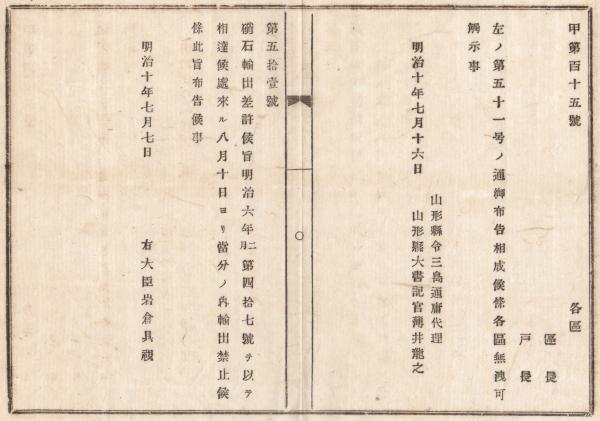 甲第百十五號
各區
區長
戸長
左ノ第五十一号ノ通御布告相成候條各區無洩可
觸示事
明治十年七月十六日
山形縣令三島通庸代理
山形縣大書記官薄井龍之
第五拾壹號
硝石輸出差許候旨明治六年二月第四拾七號ヲ以テ
相達候處來ル八月十日ヨリ當分ノ內輸出禁止候
條此旨布告候事
明治十年七月七日
右大臣岩倉具視